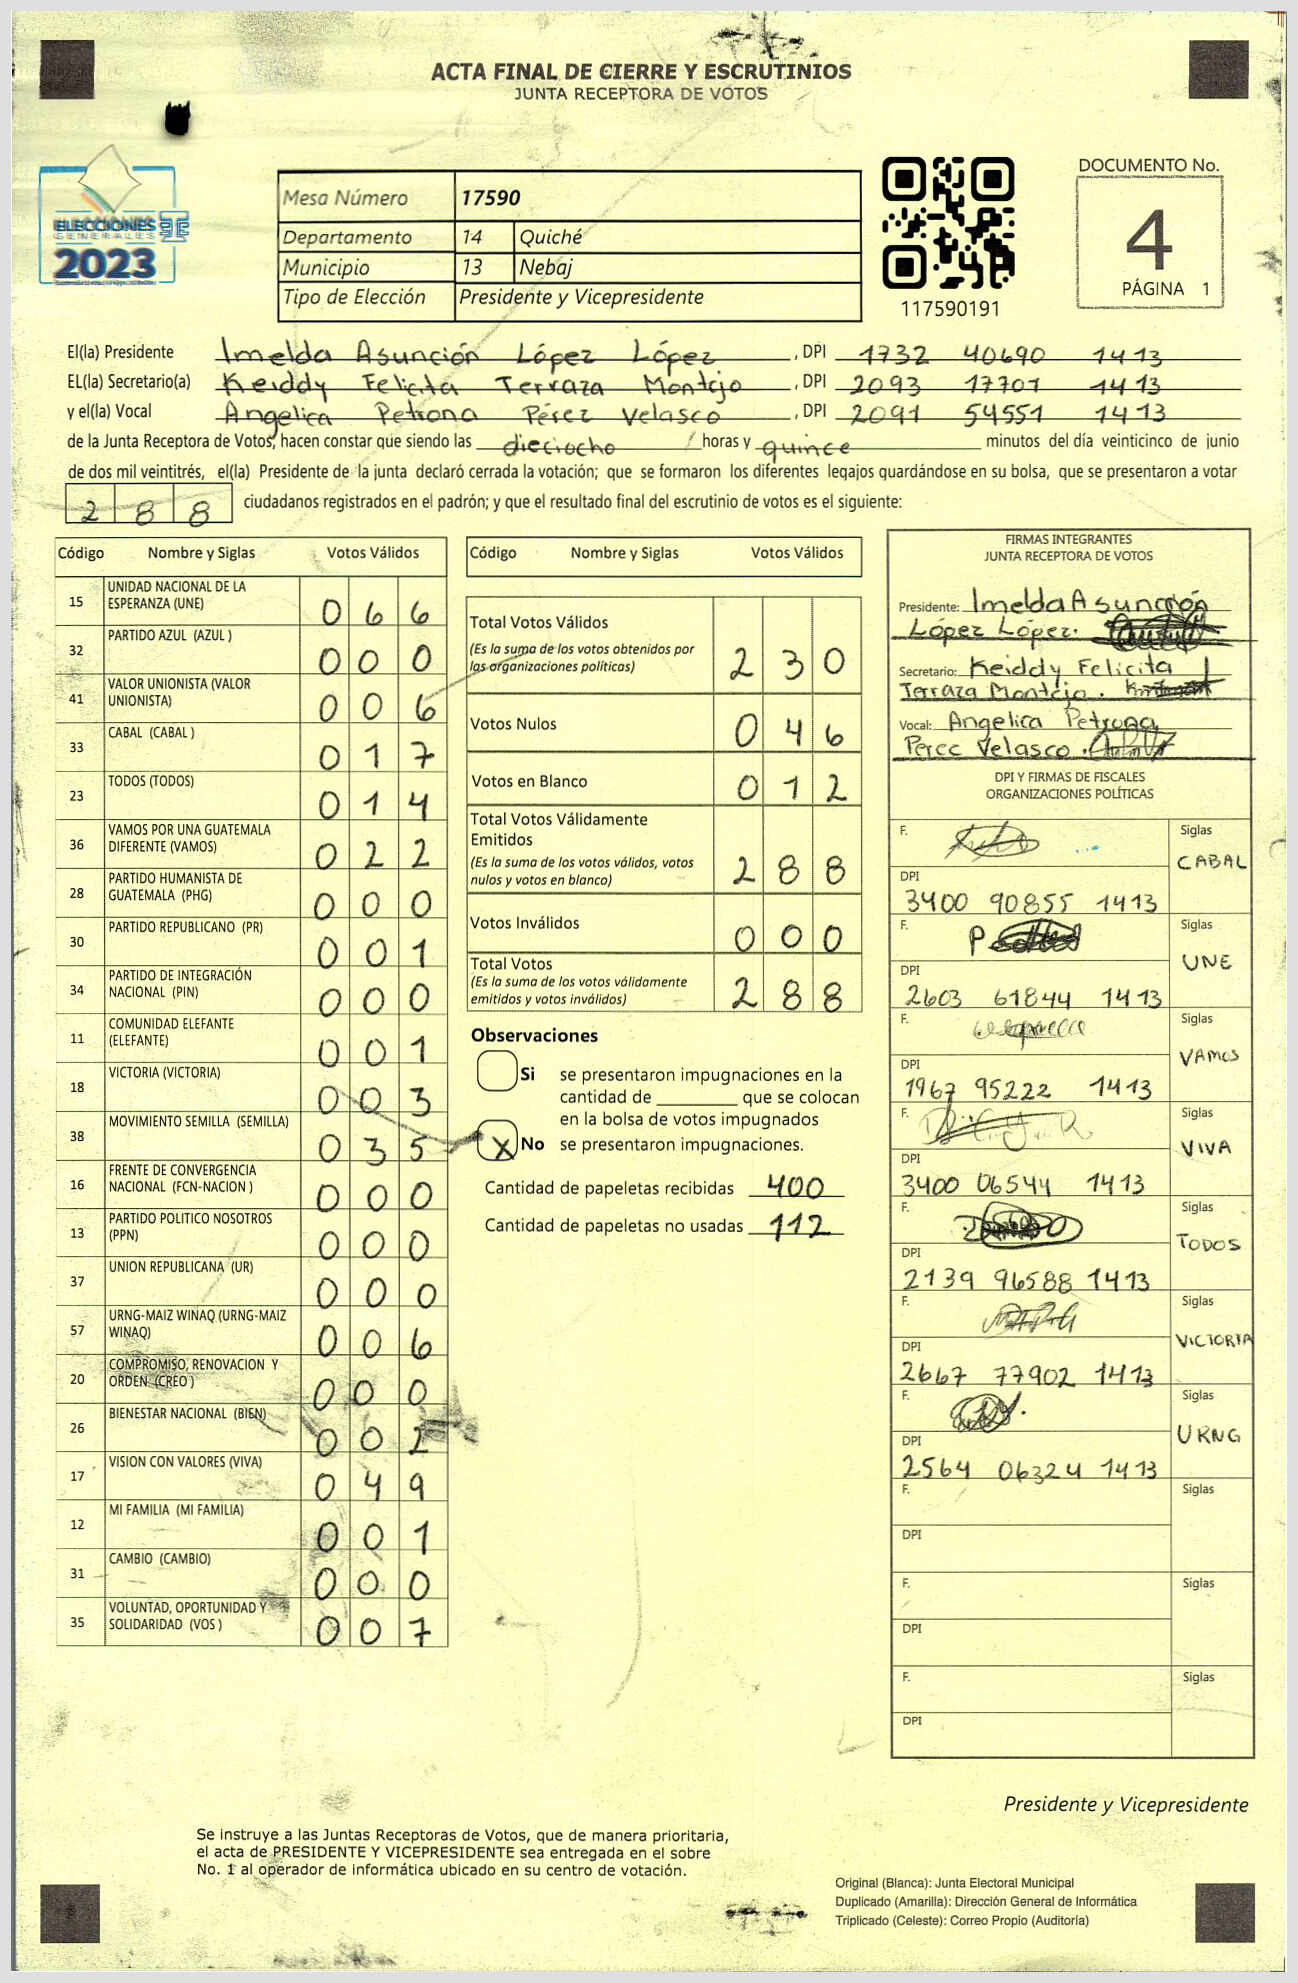 ACTA FINAL DE CIERRE Y ESCRUTINIOS
JUNTA RECEPTORA DE VOTOS
ELECCIONES
GENERALES
2023
Mesa Número 17590
Departamento 14 Quiché
Municipio 13 Nebaj
Tipo de Elección Presidente y Vicepresidente
117590191
DOCUMENTO No.
4
PÁGINA 1
El(la) Presidente Imelda Asunción López López , DPI 1732 40690 1413
EL(la) Secretario(a) Keiddy Felicita Terraza Montejo , DPI 2093 17701 1413
y el(la) Vocal Angelica Petrona Pérez Velasco , DPI 2091 54551 1413
de la Junta Receptora de Votos, hacen constar que siendo las dieciocho horas y quince minutos del día veinticinco de junio
de dos mil veintitrés, el(la) Presidente de la junta declaró cerrada la votación; que se formaron los diferentes legajos guardándose en su bolsa, que se presentaron a votar
288 ciudadanos registrados en el padrón; y que el resultado final del escrutinio de votos es el siguiente:
Código Nombre y Siglas Votos Válidos
15 UNIDAD NACIONAL DE LA
ESPERANZA (UNE) 066
32 PARTIDO AZUL (AZUL ) 000
41 VALOR UNIONISTA (VALOR
UNIONISTA) 006
33 CABAL (CABAL ) 017
23 TODOS (TODOS) 014
36 VAMOS POR UNA GUATEMALA
DIFERENTE (VAMOS) 022
28 PARTIDO HUMANISTA DE
GUATEMALA (PHG) 000
30 PARTIDO REPUBLICANO (PR) 001
34 PARTIDO DE INTEGRACIÓN
NACIONAL (PIN) 000
11 COMUNIDAD ELEFANTE
(ELEFANTE) 001
18 VICTORIA (VICTORIA) 003
38 MOVIMIENTO SEMILLA (SEMILLA) 035
16 FRENTE DE CONVERGENCIA
NACIONAL (FCN-NACION ) 000
13 PARTIDO POLITICO NOSOTROS
(PPN) 000
37 UNION REPUBLICANA (UR) 000
57 URNG-MAIZ WINAQ (URNG-MAIZ
WINAQ) 006
20 COMPROMISO, RENOVACION Y
ORDEN (CREO ) 000
26 BIENESTAR NACIONAL (BIEN) 002
17 VISION CON VALORES (VIVA) 049
12 MI FAMILIA (MI FAMILIA) 001
31 CAMBIO (CAMBIO) 000
35 VOLUNTAD, OPORTUNIDAD Y
SOLIDARIDAD (VOS ) 007
Código Nombre y Siglas Votos Válidos
Total Votos Válidos
(Es la suma de los votos obtenidos por
las organizaciones políticas) 230
Votos Nulos 046
Votos en Blanco 012
Total Votos Válidamente
Emitidos
(Es la suma de los votos válidos, votos
nulos y votos en blanco) 288
Votos Inválidos 000
Total Votos
(Es la suma de los votos válidamente
emitidos y votos inválidos) 288
Observaciones
Si se presentaron impugnaciones en la
cantidad de ________ que se colocan
en la bolsa de votos impugnados
X No se presentaron impugnaciones.
Cantidad de papeletas recibidas 400
Cantidad de papeletas no usadas 112
FIRMAS INTEGRANTES
JUNTA RECEPTORA DE VOTOS
Presidente: Imelda Asunción
López López.
Secretario: Keiddy Felicita
Terraza Montejo.
Vocal: Angelica Petrona
Perez Velasco.
DPI Y FIRMAS DE FISCALES
ORGANIZACIONES POLÍTICAS
F. Siglas
CABAL
DPI
3400 90855 1413
F. Siglas
UNE
DPI
2603 61844 1413
F. Siglas
VAMOS
DPI
1967 95222 1413
F. Siglas
VIVA
DPI
3400 06544 1413
F. Siglas
TODOS
DPI
2139 96588 1413
F. Siglas
VICTORIA
DPI
2667 77902 1413
F. Siglas
URNG
DPI
2564 06324 1413
F. Siglas
DPI
F. Siglas
DPI
F. Siglas
DPI
Presidente y Vicepresidente
Se instruye a las Juntas Receptoras de Votos, que de manera prioritaria,
el acta de PRESIDENTE Y VICEPRESIDENTE sea entregada en el sobre
No. 1 al operador de informática ubicado en su centro de votación.
Original (Blanca): Junta Electoral Municipal
Duplicado (Amarilla): Dirección General de Informática
Triplicado (Celeste): Correo Propio (Auditoría)